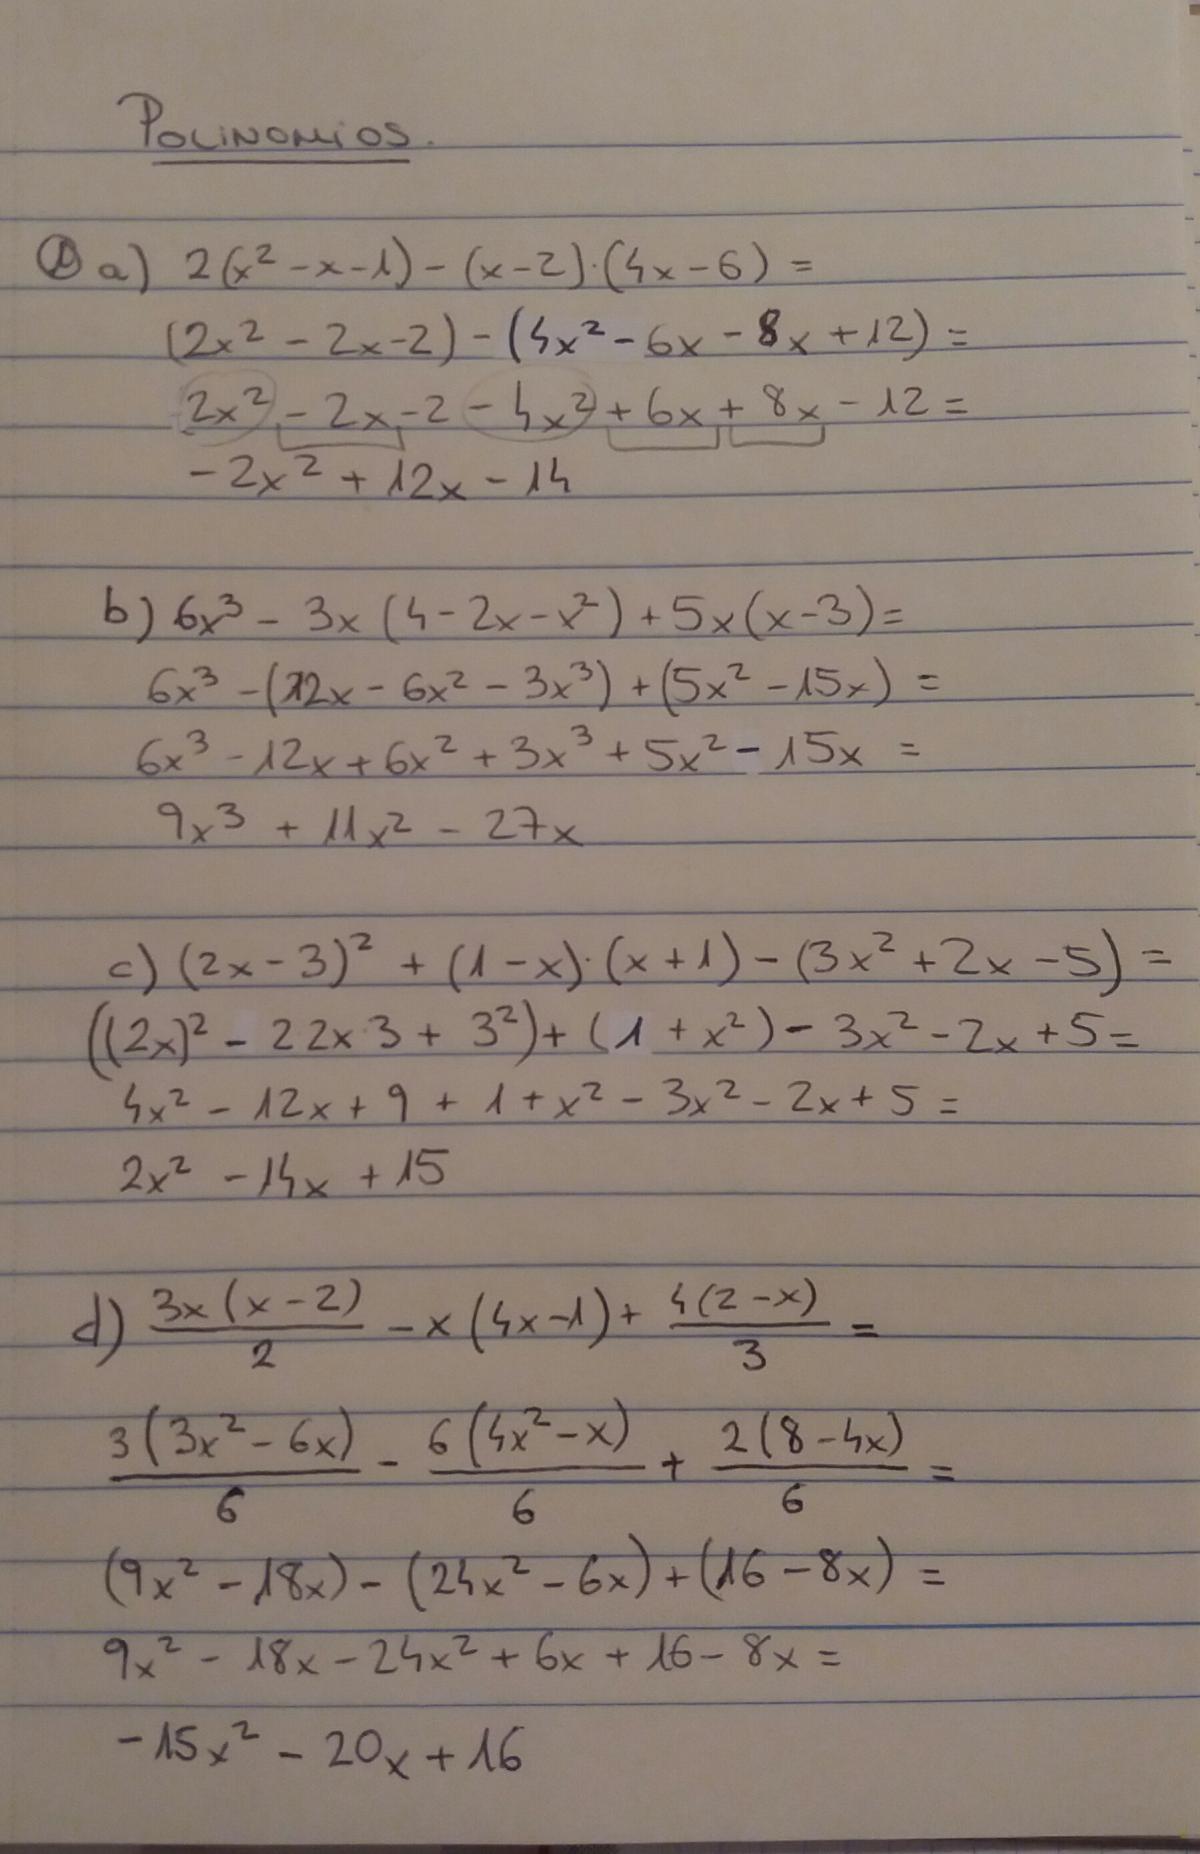 Polinomios.
① a) 2(x² - x - 1) - (x - 2)·(4x - 6) =
(2x² - 2x - 2) - (4x² - 6x - 8x + 12) =
2x² - 2x - 2 - 4x² + 6x + 8x - 12 =
-2x² + 12x - 14
b) 6x³ - 3x (4 - 2x - x²) + 5x(x - 3) =
6x³ - (12x - 6x² - 3x³) + (5x² - 15x) =
6x³ - 12x + 6x² + 3x³ + 5x² - 15x =
9x³ + 11x² - 27x
c) (2x - 3)² + (1 - x)·(x + 1) - (3x² + 2x - 5) =
((2x)² - 2 2x·3 + 3²) + (1 + x²) - 3x² - 2x + 5 =
4x² - 12x + 9 + 1 + x² - 3x² - 2x + 5 =
2x² - 14x + 15
d) 3x(x - 2)/2 - x(4x - 1) + 4(2 - x)/3 =
3(3x² - 6x)/6 - 6(4x² - x)/6 + 2(8 - 4x)/6 =
(9x² - 18x) - (24x² - 6x) + (16 - 8x) =
9x² - 18x - 24x² + 6x + 16 - 8x =
-15x² - 20x + 16